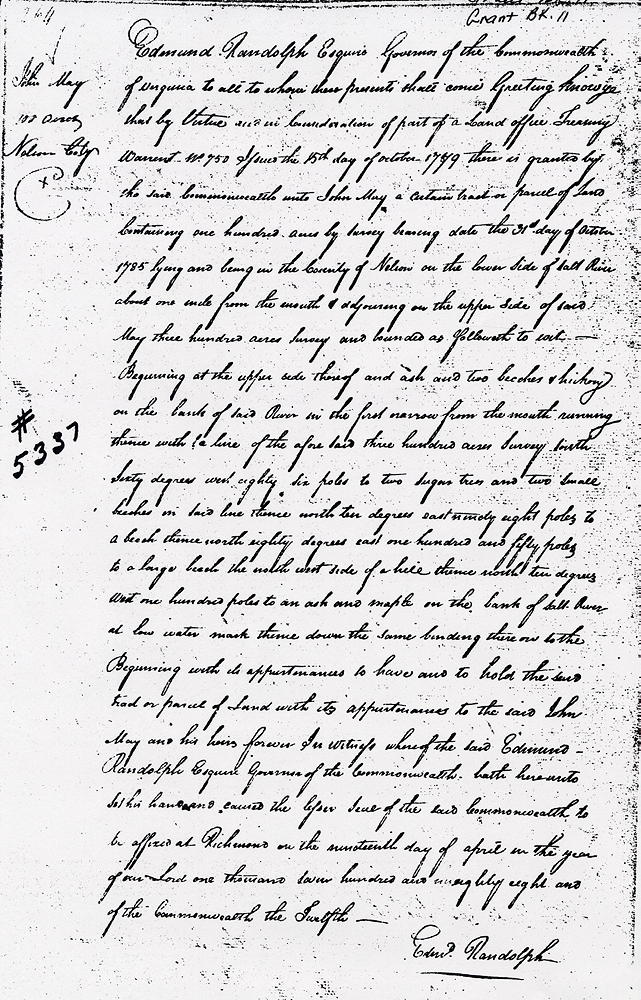 Grant BK. 11
John May
100 acres
Nelson Coty
Edmund Randolph Esquire Governor of the Commonwealth
of Virginia to all to whom these presents shall come Greeting know ye
that by Virtue and in Consideration of part of a Land office Treasury
Warrent No 750 Issued the 15th day of October 1779 there is granted by
the said Commonwealth unto John May a certain tract or parcel of Land
Containing one hundred acres by Survey bearing date the 31st day of October
1785 lying and being in the County of Nelson on the lower Side of Salt River
about one mile from the mouth & adjoining on the upper Side of said
May three hundred acres Survey and bounded as followeth to wit —
Beginning at the upper side thereof and ash and two beeches & hickory
on the bank of said River in the first narrow from the mouth running
thence with a line of the afore said three hundred acres Survey South
Sixty degrees west eighty six poles to two sugar trees and two small
beeches on said line thence north ten degrees east ninety eight poles to
a beech thence north eighty degrees east one hundred and fifty poles
to a large beech the north west side of a hill thence north ten degrees
West one hundred poles to an ash and maple on the bank of Salt River
at low water mark thence down the same binding thereon to the
Beginning with its appurtenances to have and to hold the said
tract or parcel of Land with its appurtenances to the said John
May and his heirs forever In Witness whereof the said Edmund -
Randolph Esquire Governor of the Commonwealth hath hereunto
Set his hand and caused the lesser Seal of the said Commonwealth to
be affixed at Richmond on the nineteenth day of april in the year
of our Lord one thousand seven hundred and eighty eight and
of the Commonwealth the Twelfth —
Edmd. Randolph
# 5337